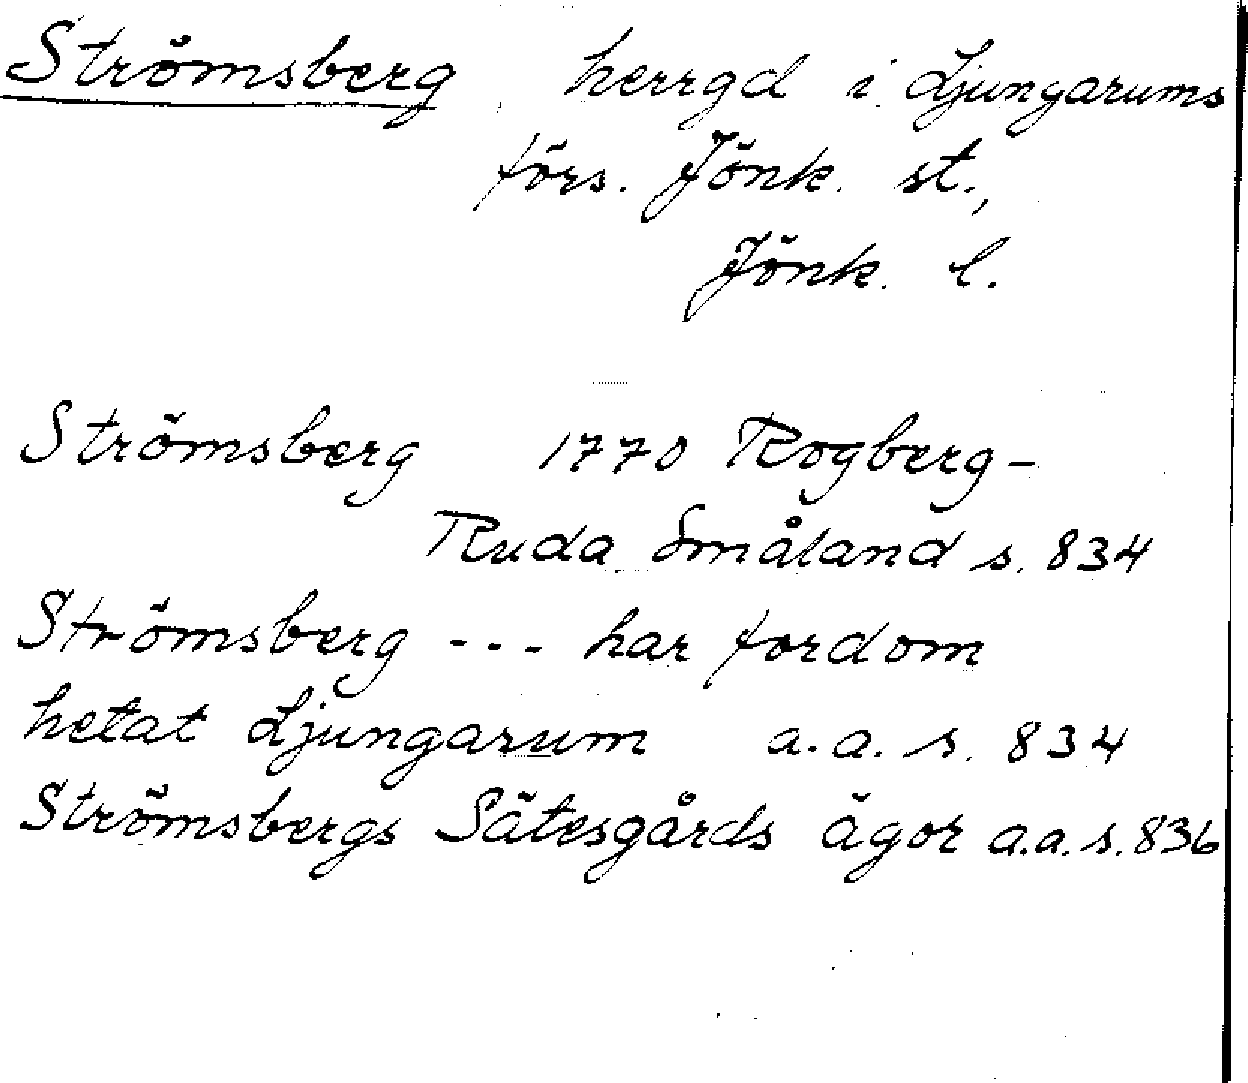 Strömsberg herrgd i Ljungarums
förs. Jönk. st.,
Jönk. l.
Strömsberg 1770 Rogberg-
Ruda Småland s. 834
Strömsberg --- har fordom
hetat Ljungarum a.a. s. 834
Strömsbergs Sätesgårds ägor a.a. s. 836